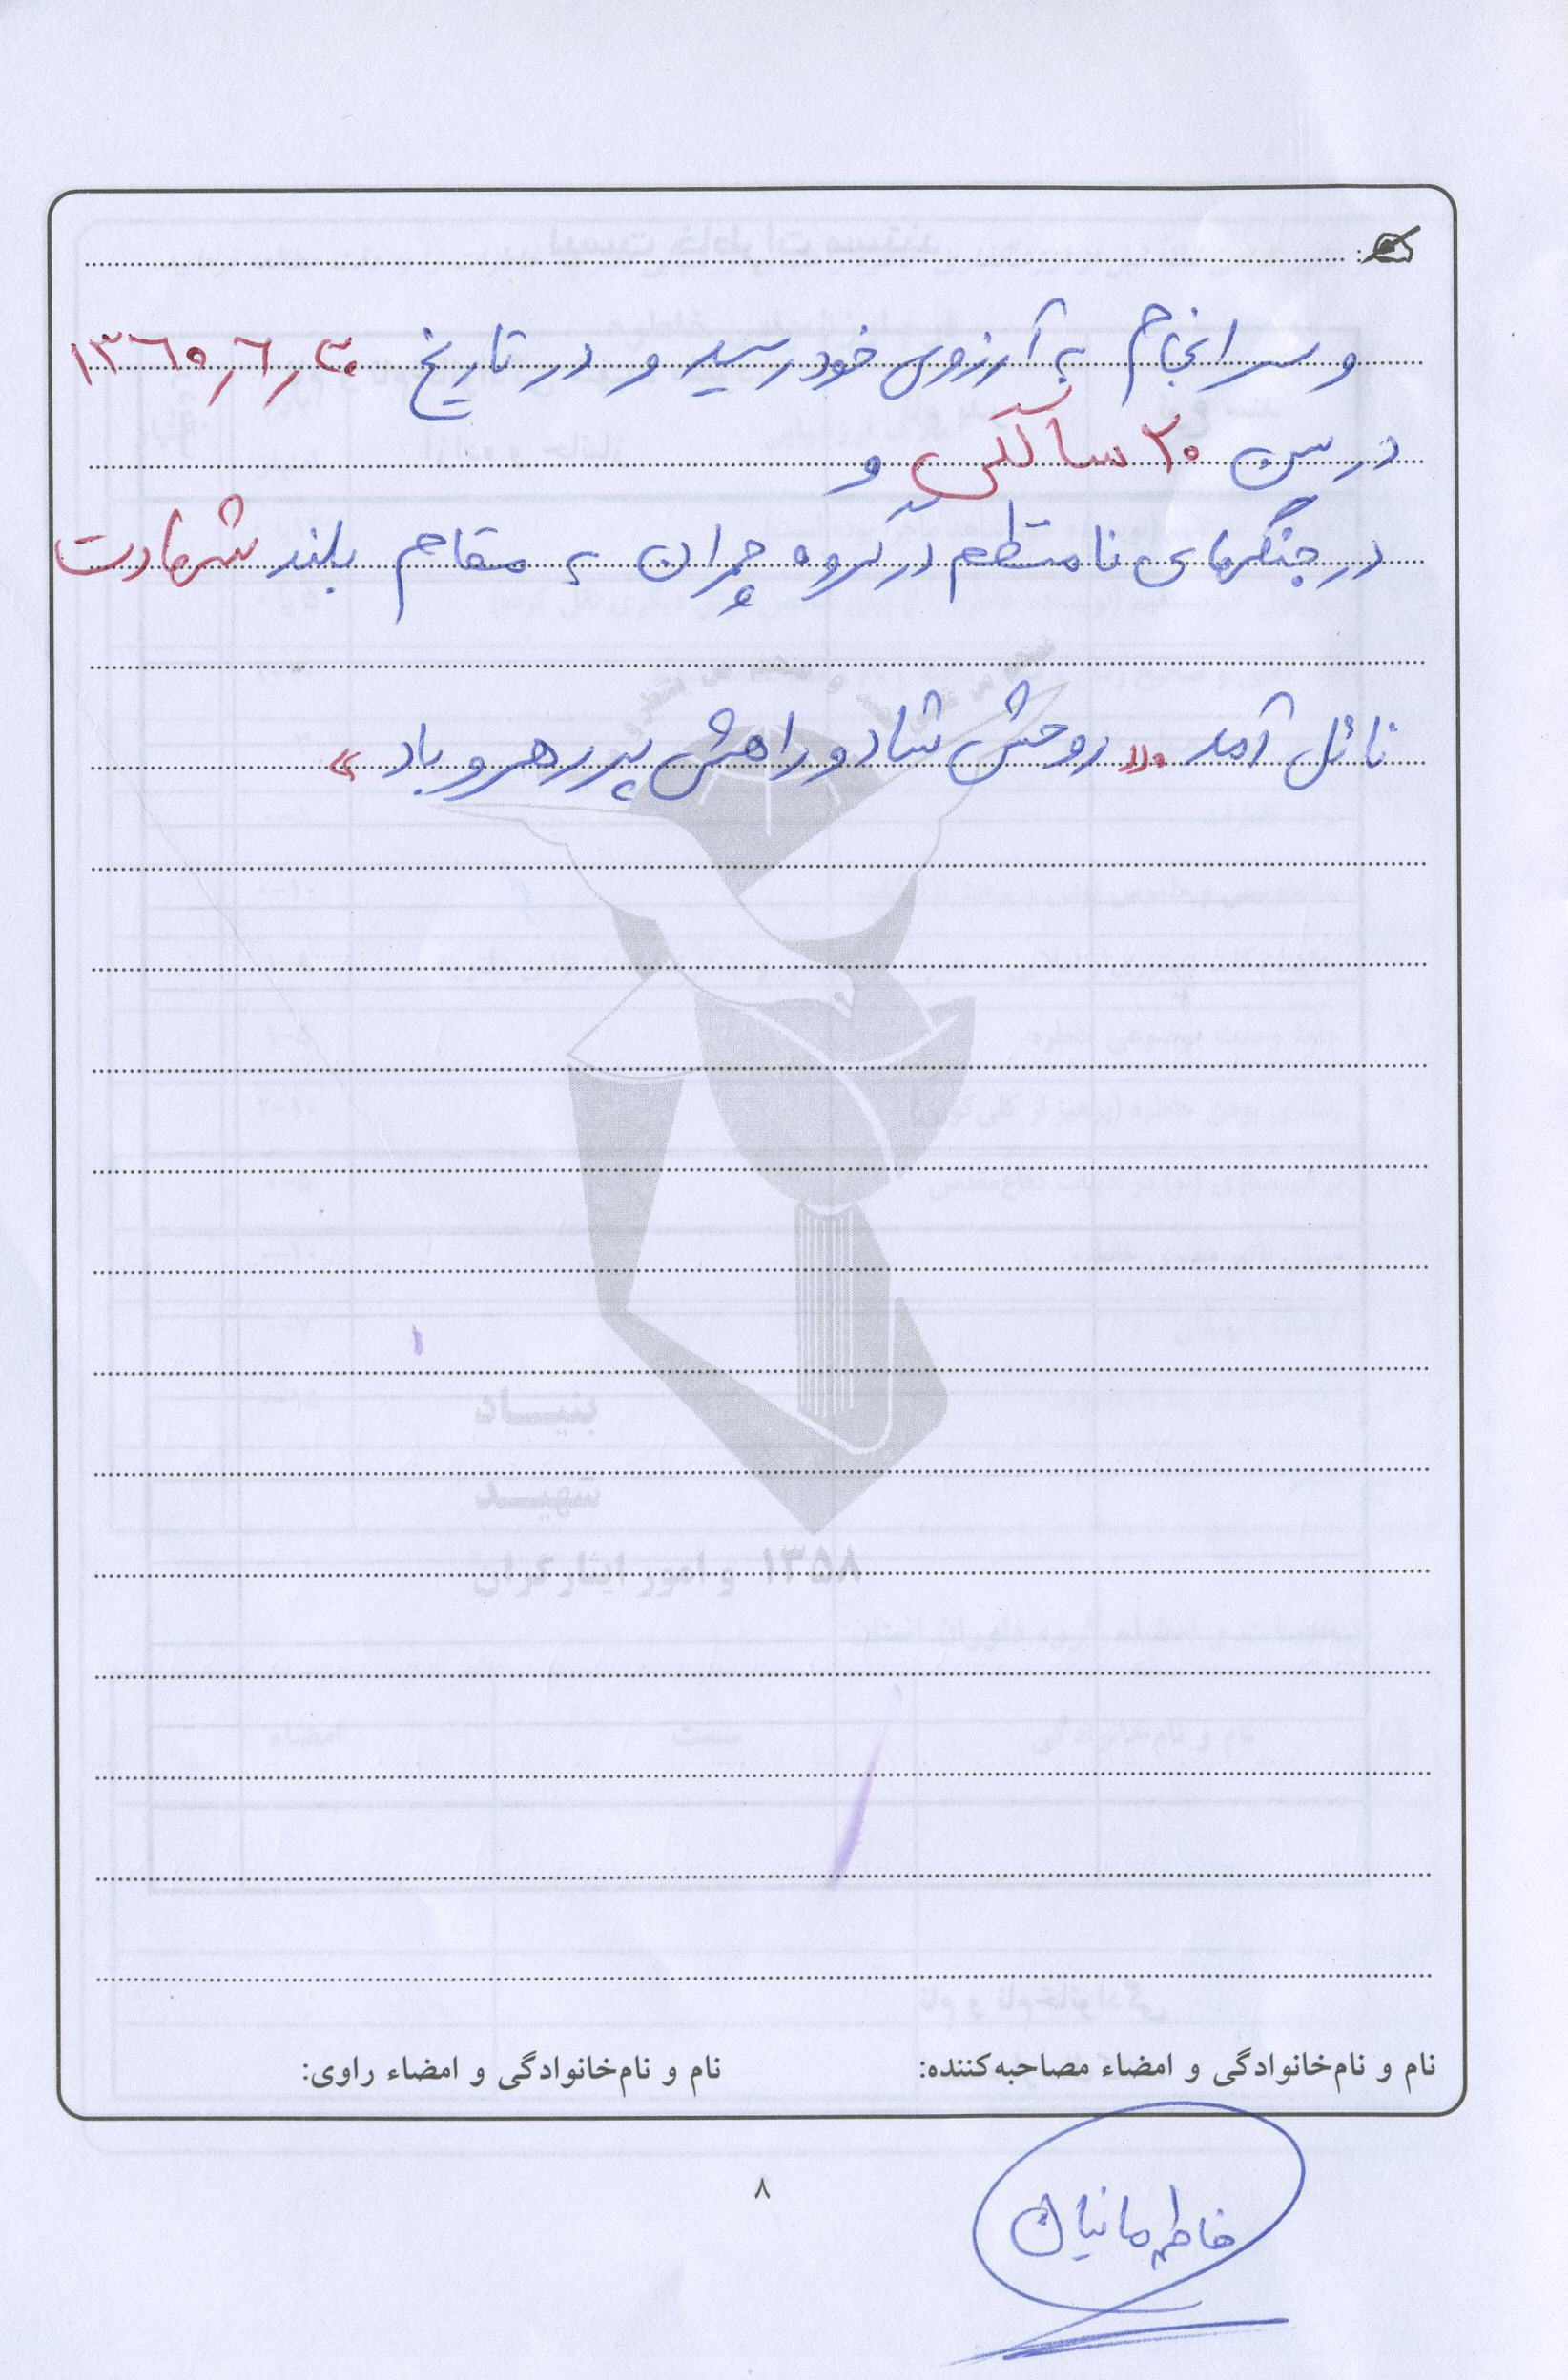 و سرانجام به آرزوی خود رسید و در تاریخ ۱۳٦۰٫٦٫۳۰
در سن ۲۰ سالگی و
در جنگهای نامنتظم در گروه چمران به مقام بلند شهادت
نائل آمد. «روحش شاد و راهش پر رهرو باد»
بنیاد
شهید
و امور ایثارگران ۱۳۵۸
نام و نام‌خانوادگی و امضاء مصاحبه‌کننده:
نام و نام‌خانوادگی و امضاء راوی:
۸
فاطمه مانیان